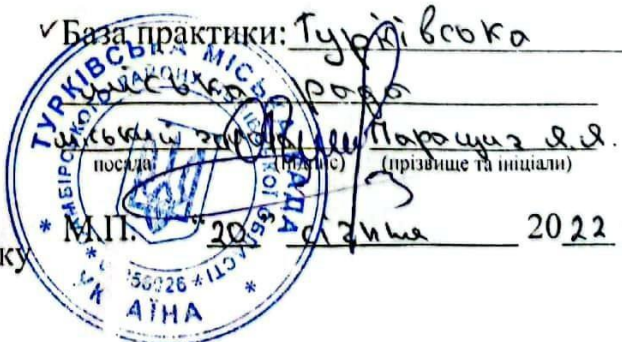 База практики: Турківська
міська рада
міський голова Паращич Я.Я.
посада (підпис) (прізвище та ініціали)
М.П. "20 січня 2022
ку
ТУРКІВСЬКА МІСЬКА РАДА
УКРАЇНА